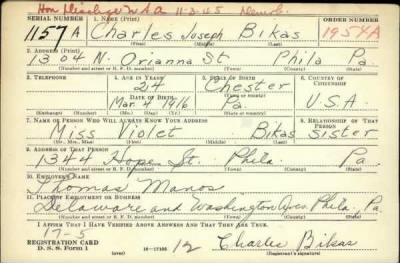 Hon Discharge W A A 11-3-45
SERIAL NUMBER 1. NAME (Print) ORDER NUMBER
1157 A Charles Joseph Bikas 1954A
(First) (Middle) (Last)
2. ADDRESS (Print)
1304 N. Orianna St Phila Pa.
(Number and street or R. F. D. number) (Town) (County) (State)
3. TELEPHONE 4. AGE IN YEARS 5. PLACE OF BIRTH 6. COUNTRY OF CITIZENSHIP
24 Chester
DATE OF BIRTH
Mar. 4 1916 Pa. U.S.A.
(Exchange) (Number) (Mo.) (Day) (Yr.) (State or country)
7. NAME OF PERSON WHO WILL ALWAYS KNOW YOUR ADDRESS 8. RELATIONSHIP OF THAT PERSON
Miss Violet Bikas Sister
(Mr., Mrs., Miss) (First) (Middle) (Last)
9. ADDRESS OF THAT PERSON
1344 Hope St. Phila. Pa.
(Number and street or R. F. D. number) (Town) (County) (State)
10. EMPLOYER'S NAME
Thomas Manos
11. PLACE OF EMPLOYMENT OR BUSINESS
Delaware and Washington Aves Phila. Pa.
(Number and street or R. F. D. number) (Town) (County) (State)
I AFFIRM THAT I HAVE VERIFIED ABOVE ANSWERS AND THAT THEY ARE TRUE.
17-5
REGISTRATION CARD
D. S. S. Form 1 (over) 16-17105 12 Charles Bikas
(Signature)